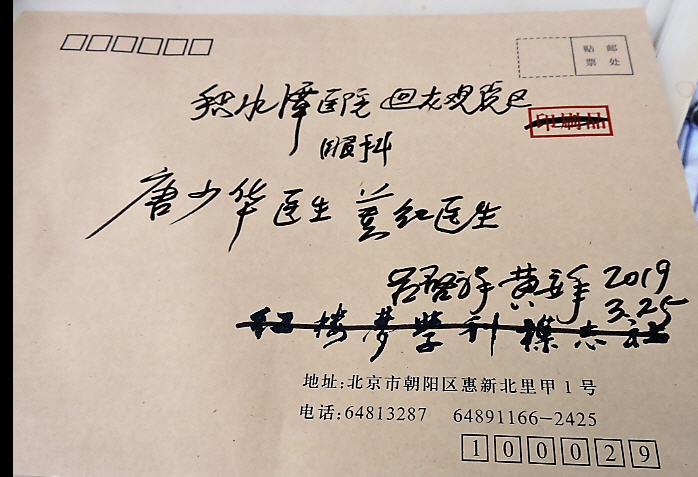 贴 邮
票 处
积水潭医院 回龙观院区
印刷品
眼科
唐少华医生 黄红医生
吕启祥 黄安年 2019
3.25
红楼梦学刊杂志社
地址:北京市朝阳区惠新北里甲1号
电话:64813287 64891166-2425
100029